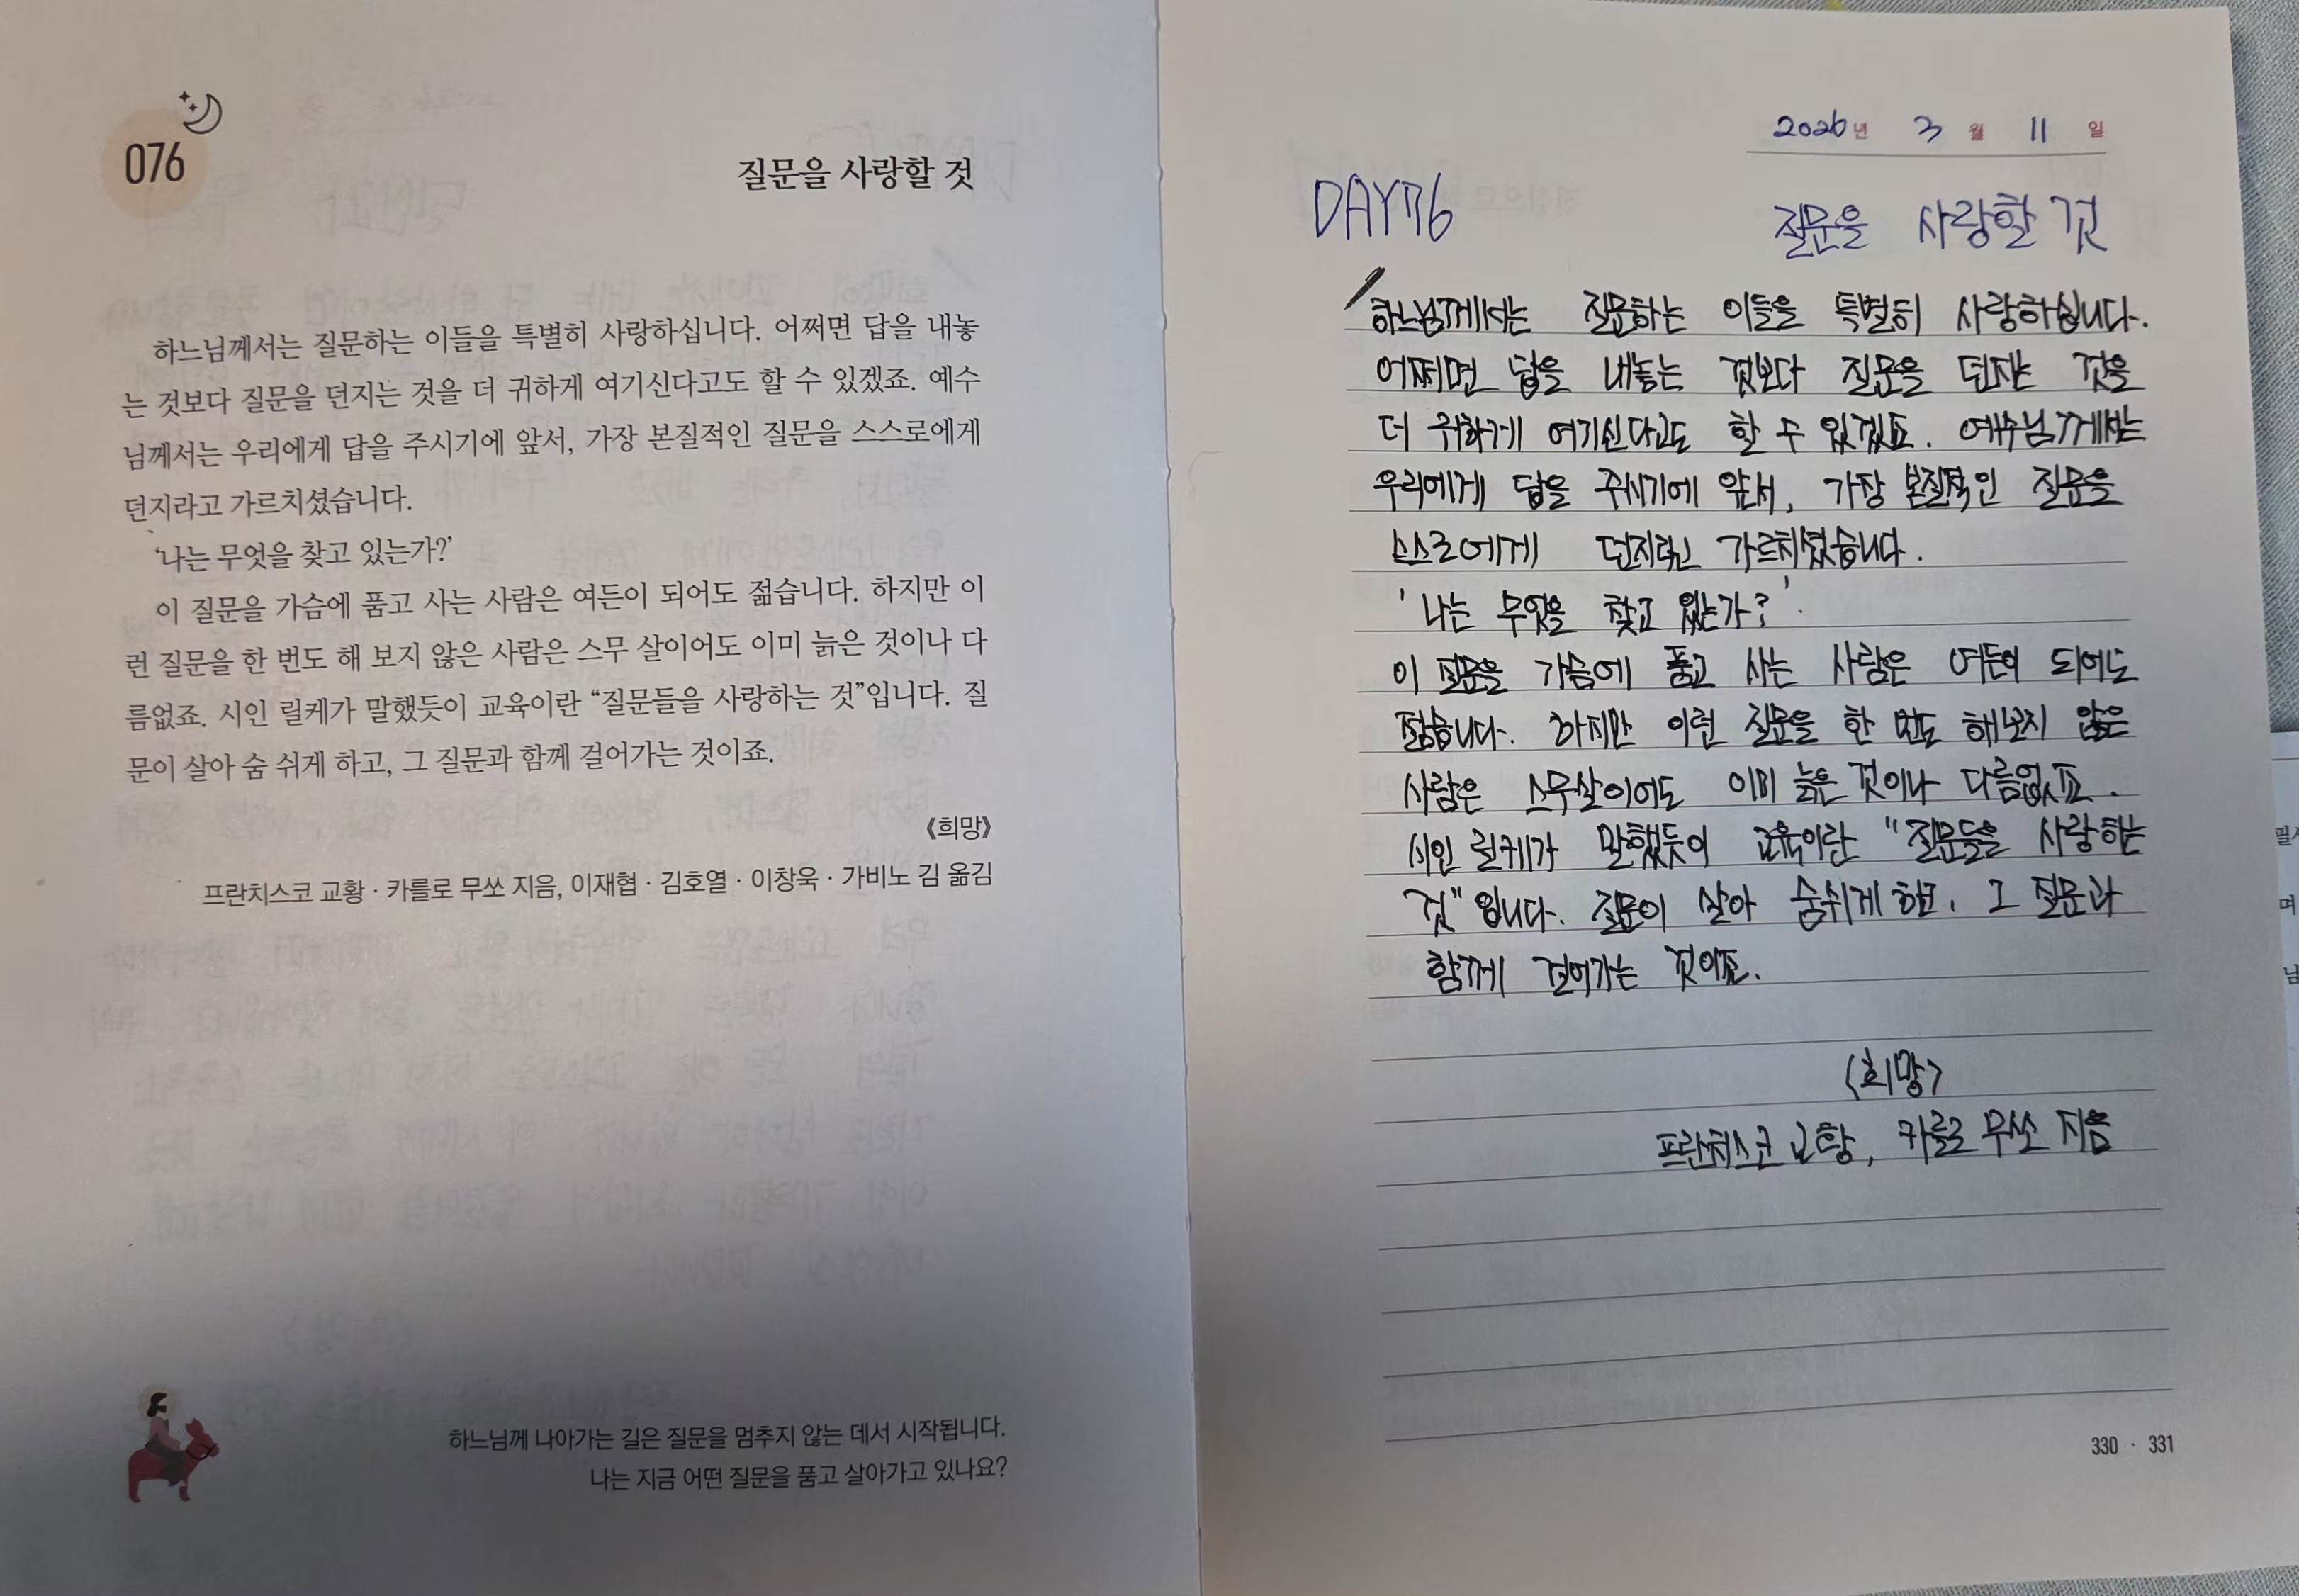 076
질문을 사랑할 것
하느님께서는 질문하는 이들을 특별히 사랑하십니다. 어쩌면 답을 내놓
는 것보다 질문을 던지는 것을 더 귀하게 여기신다고도 할 수 있겠죠. 예수
님께서는 우리에게 답을 주시기에 앞서, 가장 본질적인 질문을 스스로에게
던지라고 가르치셨습니다.
‘나는 무엇을 찾고 있는가?’
이 질문을 가슴에 품고 사는 사람은 여든이 되어도 젊습니다. 하지만 이
런 질문을 한 번도 해 보지 않은 사람은 스무 살이어도 이미 늙은 것이나 다
름없죠. 시인 릴케가 말했듯이 교육이란 “질문들을 사랑하는 것”입니다. 질
문이 살아 숨 쉬게 하고, 그 질문과 함께 걸어가는 것이죠.
《희망》
프란치스코 교황 · 카를로 무쏘 지음, 이재협 · 김호열 · 이창욱 · 가비노 김 옮김
하느님께 나아가는 길은 질문을 멈추지 않는 데서 시작됩니다.
나는 지금 어떤 질문을 품고 살아가고 있나요?
2026년 3월 11일
DAY76 질문을 사랑할 것
하느님께서는 질문하는 이들을 특별히 사랑하십니다.
어쩌면 답을 내놓는 것보다 질문을 던지는 것을
더 귀하게 여기신다고도 할 수 있겠죠. 예수님께서는
우리에게 답을 주시기에 앞서, 가장 본질적인 질문을
스스로에게 던지라고 가르치셨습니다.
'나는 무엇을 찾고 있는가?'.
이 질문을 가슴에 품고 사는 사람은 여든이 되어도
젊습니다. 하지만 이런 질문을 한 번도 해보지 않은
사람은 스무살이어도 이미 늙은 것이나 다름없죠.
시인 릴케가 말했듯이 교육이란 "질문들을 사랑하는
것"입니다. 질문이 살아 숨쉬게 하고, 그 질문과
함께 걸어가는 것이죠.
<희망>
프란치스코 교황, 카를로 무쏘 지음
330 · 331